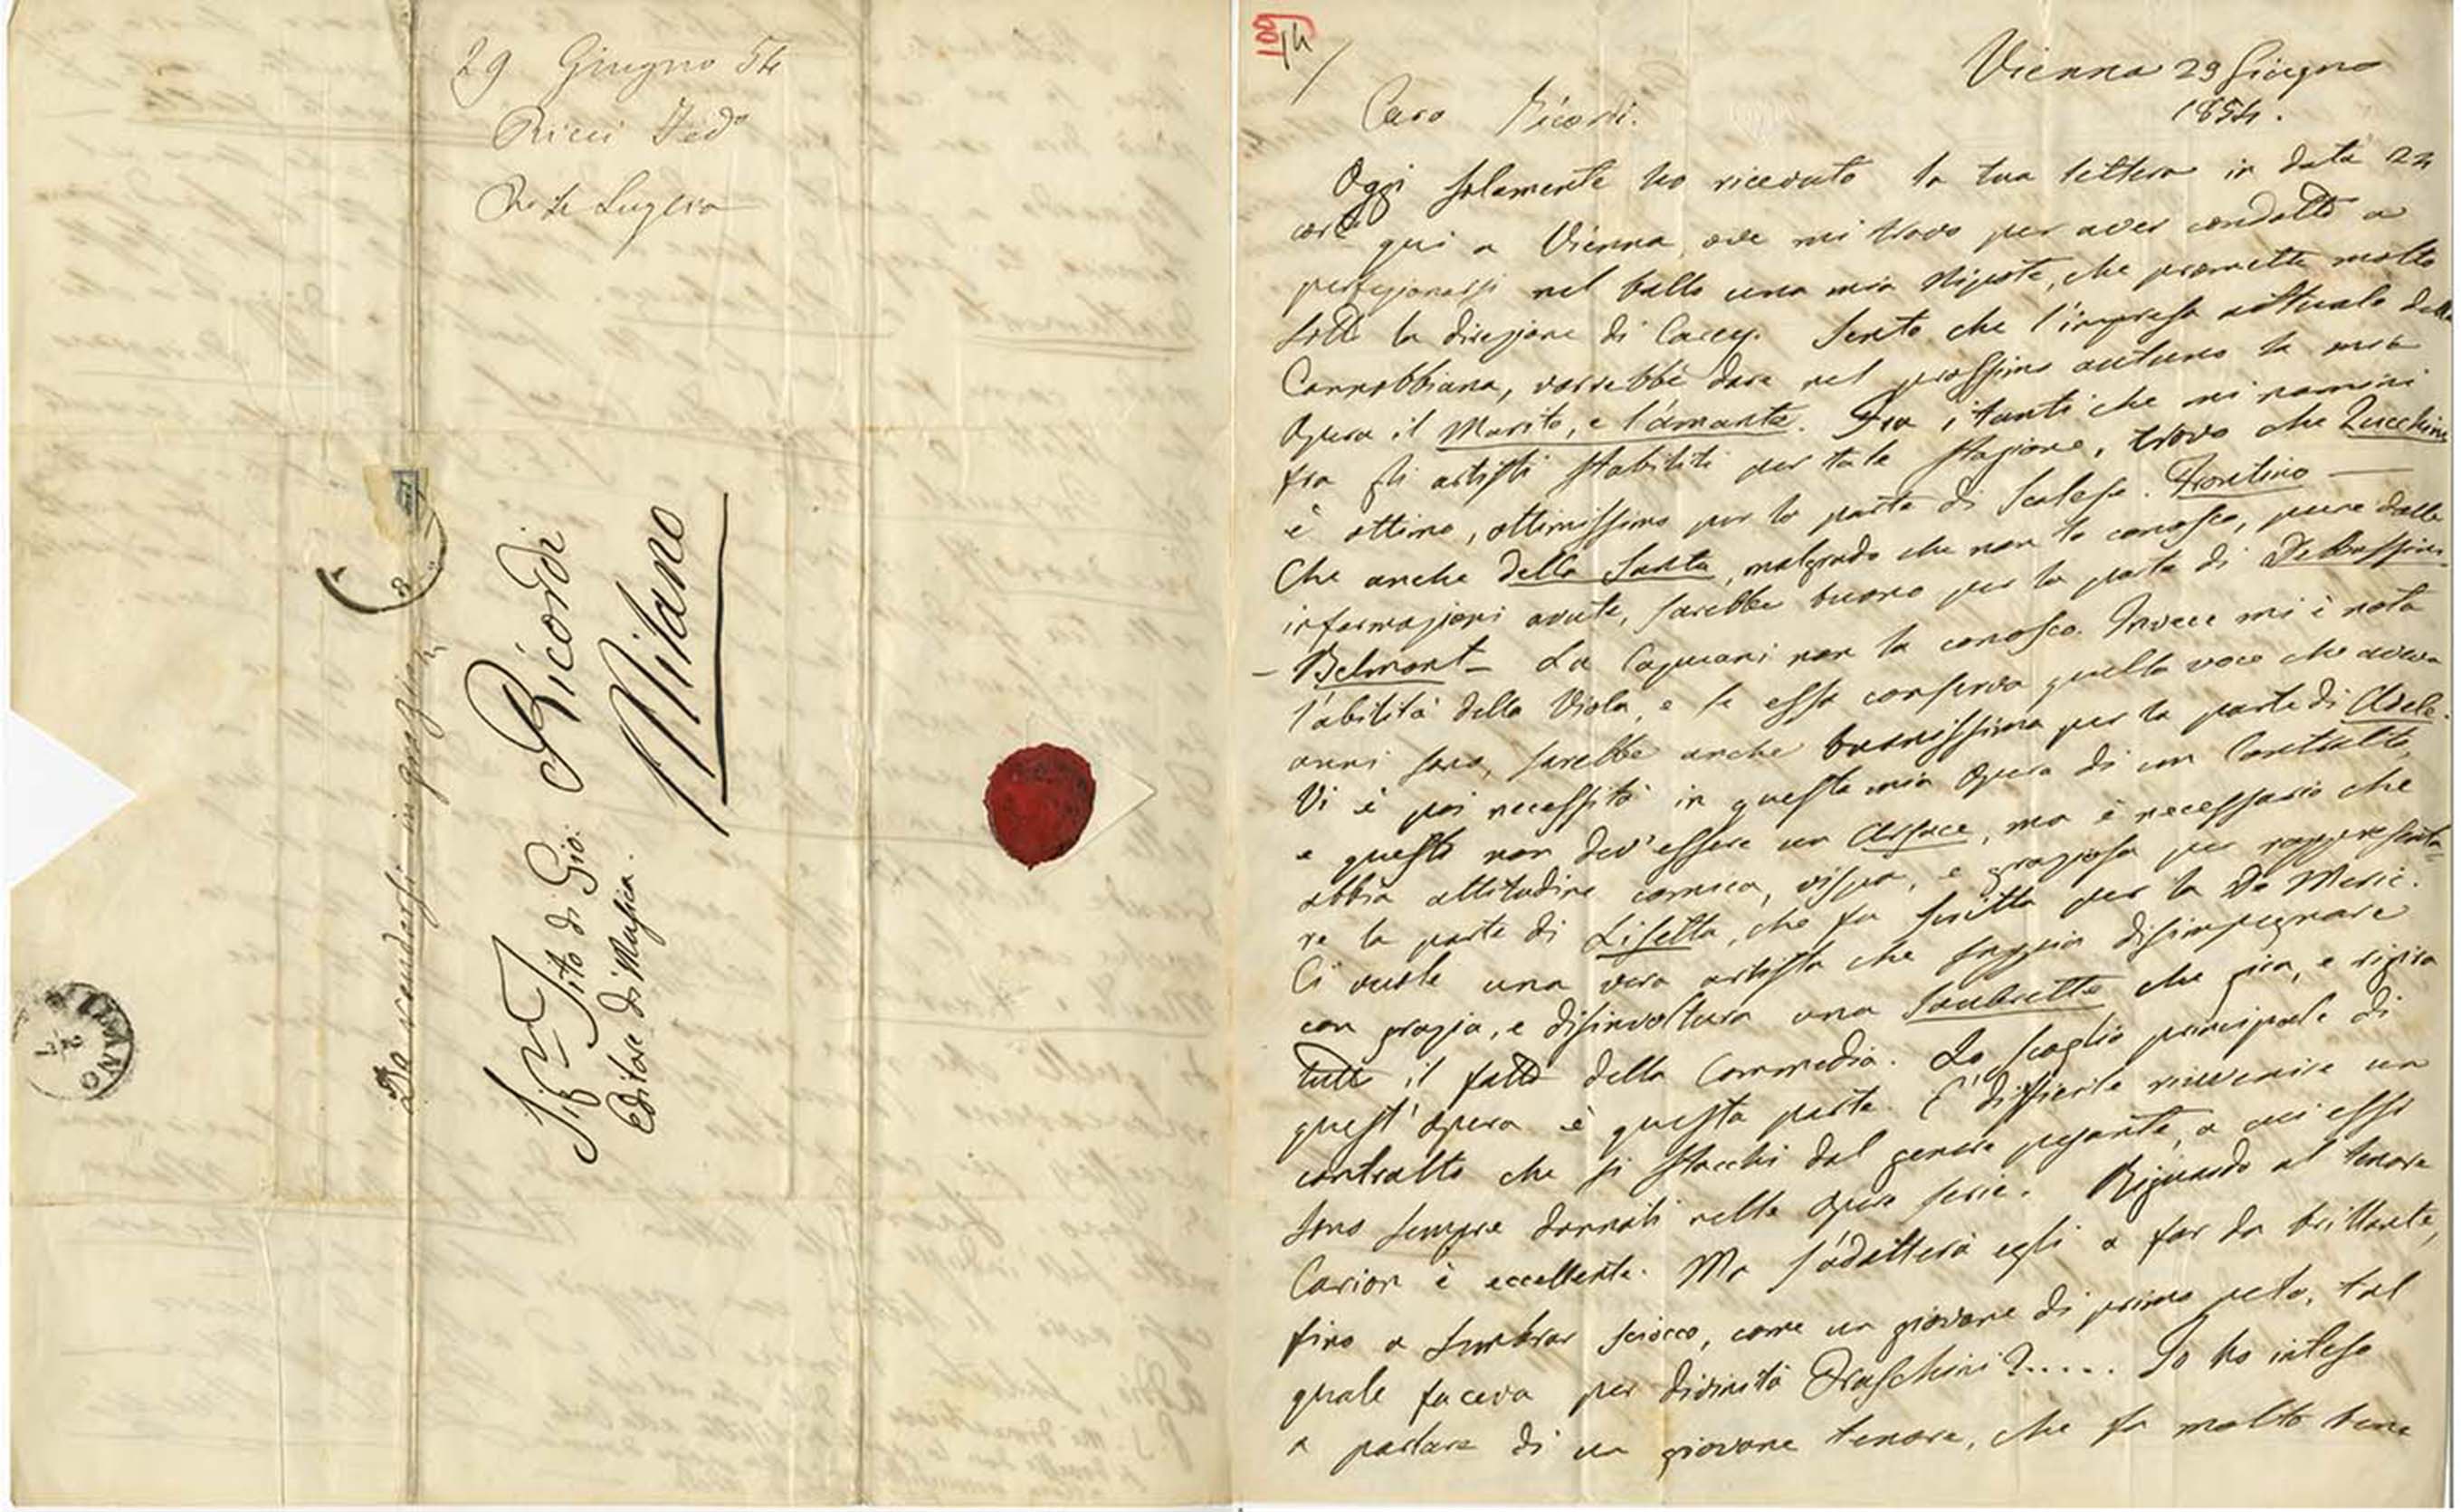 29 Giugno 54
Ricci Fedᵒ
Ro 4 Luglio
Sigʳ Tito di Gio. Ricordi
Editore di Musica.
Milano
MILANO
2
7
Vienna 29 Giugno
1854.
Caro Ricordi.
Oggi solamente ho ricevuto la tua lettera in data 22
corrᵉ qui a Vienna ove mi trovo per aver condotto a
perfezionarsi nel ballo una mia Nipote, che promette molto
sotto la direzione di Carey. Sento che l'impresa attuale della
Cannobbiana, vorrebbe dare nel prossimo autuno la mia
Opera il Marito, e l'amante. Fra i tanti che mi nomini
fra gli artisti stabiliti per tale stagione, trovo che Zucchini
è ottimo, ottimissimo per la parte di Scalese. Frontino —
Che anche della Santa, malgrado che non lo conosco, pure dalle
informazioni avute, sarebbe buono per la parte di De Bassini
— Belmont — La Capuani non la conosco. Invece mi è nota
l'abilità della Viola, e se essa conserva quella voce che aveva
anni sono, sarebbe anche buonissima per la parte di Adele.
Vi è poi necessità in questa mia Opera di un Contralto,
e questo non dev'essere un Arsace, ma è necessario che
abbia attitudine comica, vispa, e graziosa per rappresenta-
re la parte di Lisetta, che fu scritta per la De Meric.
Ci vuole una vera artista che sappia disimpegnare
con grazia, e disinvoltura una Soubrette che gira, e rigira
tutto il fatto della Commedia. Lo scoglio principale di
quest'opera è questa parte. E' difficile rinvenire un
contralto che si stacchi dal genere pesante, a cui essi
sono sempre dannati nelle opere serie. Riguardo al tenore
Carion è eccellente. Ma s'adatterà egli a far da brillante,
fino a sembrar sciocco, come un giovane di primo pelo, tal
quale faceva per divinità Fraschini?..... Io ho inteso
a parlare di un giovane tenore, che fa molto bene